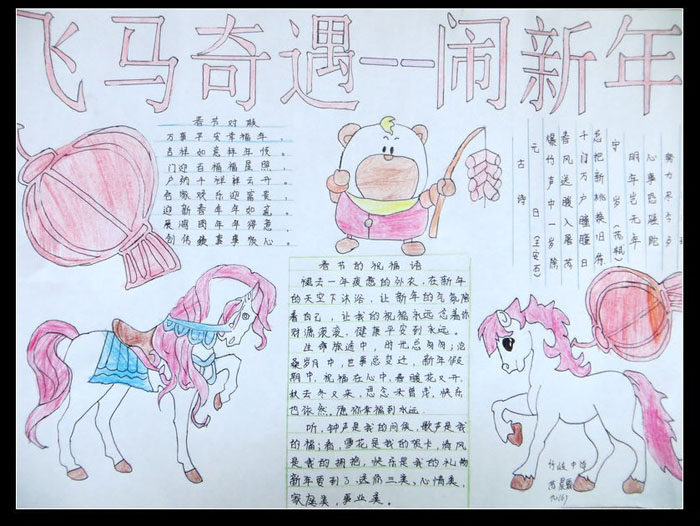 飞马奇遇——闹新年
春节对联
万事平安幸福年，
吉祥如意祥年悦。
门迎百福福星照，
户纳千祥祥云开。
合家欢乐迎富贵，
迎新春年年如意。
展鸿图年年得意。
春节的祝福语
褪去一年疲惫的外衣，在新年
的天空下沐浴，让新年的气氛陪
着自己，让我的祝福永远
健康平安到永远。
生命旅途中，时光总匆匆；沧
桑岁月中，世事总变迁，新年假
期中，祝福在心中，春暖花又开，
秋去冬又来，思念未曾老，快乐
也依然。愿你幸福到永远
听，钟声是我的问候，歌声是我
的祝福；看，雪花是我的贺卡，清风
是我的拥抱，快乐是我的礼物
新年要到了，送你三类，心情类，
家庭类，事业类。
古诗
元日（王安石）
爆竹声中一岁除
春风送暖入屠苏
千门万户曈曈日
总把新桃换旧符
守岁（苏轼）
明年岂无年
心事恐蹉跎
努力尽今夕